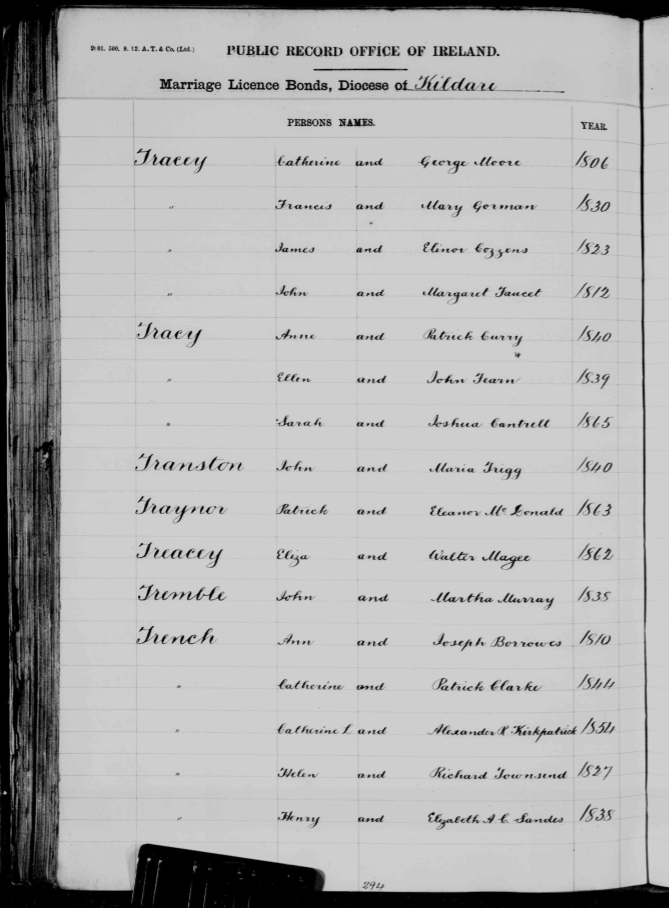 2061. 500. 8. 12. A. T. & Co. (Ltd.)
PUBLIC RECORD OFFICE OF IRELAND.
Marriage Licence Bonds, Diocese of Kildare
PERSONS NAMES. YEAR.
Tracey Catherine and George Moore 1806
" Francis and Mary Gorman 1830
" James and Elinor Cozzens 1823
" John and Margaret Faucet 1812
Tracy Anne and Patrick Curry 1840
" Ellen and John Fearn 1839
" Sarah and Joshua Cantrell 1865
Transton John and Maria Trigg 1840
Traynor Patrick and Eleanor Mc Donald 1863
Treacey Eliza and Walter Magee 1862
Tremble John and Martha Murray 1838
Trench Ann and Joseph Borrowes 1810
" Catherine and Patrick Clarke 1844
" Catherine L and Alexander R Kirkpatrick 1854
" Helen and Richard Townsend 1827
" Henry and Elizabeth A C. Sandes 1838
294